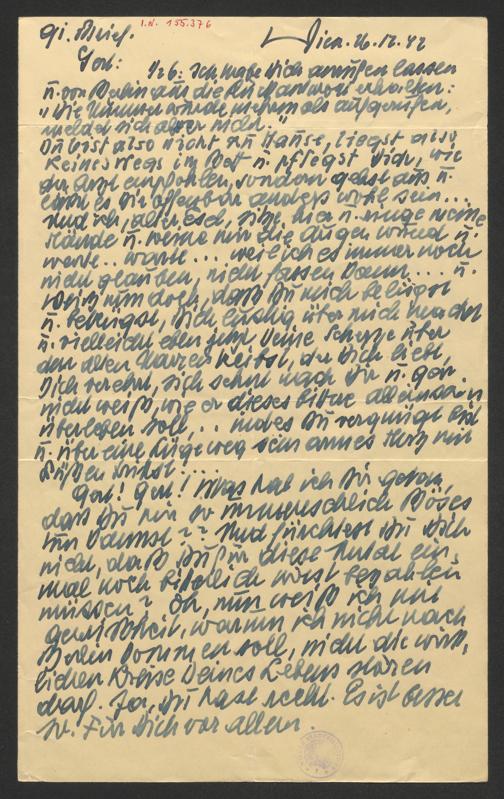 I.N. 155.376
9. Brief. Wien 26.12.42
1/2 6: Ich habe Dich anrufen lassen
u. von Berlin aus die Antwort erhalten:
"Die Nummer wurde mehrmals aufgerufen,
meldet sich aber nicht."
Du bist also nicht zu Hause, liegst also
keineswegs im Bett u. pflegst Dich, wie
der Arzt empfohlen, sondern gehst aus u.
es Dir offenbar anders wohl sein...
Und ich, alter Esel, sitze hier u. ringe meine
Hände u. weine mir die Augen wund u.
warte.. warte... weil ich es immer noch
nicht glauben, nicht fassen kann.... u.
weiß nun doch, daß Du mich belügst
u. betrügst, Dich lustig über mich machst
u. vielleicht eben jetzt Deine Scherze über
den alten Narren treibst, der Dich liebt,
Dich verehrt, sich sehnt nach Dir u. gar
nicht weiß, wie er dieses bittre Alleinsein
überleben soll,.. indes Du vergnügt bist
u. über eine Lüge weg sein armes Herz mit
Füßen trittst....
Gott! Gott! Was hab ich Dir getan,
daß Du mir so unmenschlich Böses
tun kannst?? Und fürchtest Du Dich
nicht, daß Du für diese Untat ein-
mal noch bitterlich wirst bezahlen
müssen? Oh, nun weiß ich mit
Gewißheit, warum ich nicht nach
Berlin kommen soll, nicht die wirk-
lichen Kreise Deines Lebens stören
darf. Ja, Du hast recht. Es ist besser
so. Für Dich vor allem.